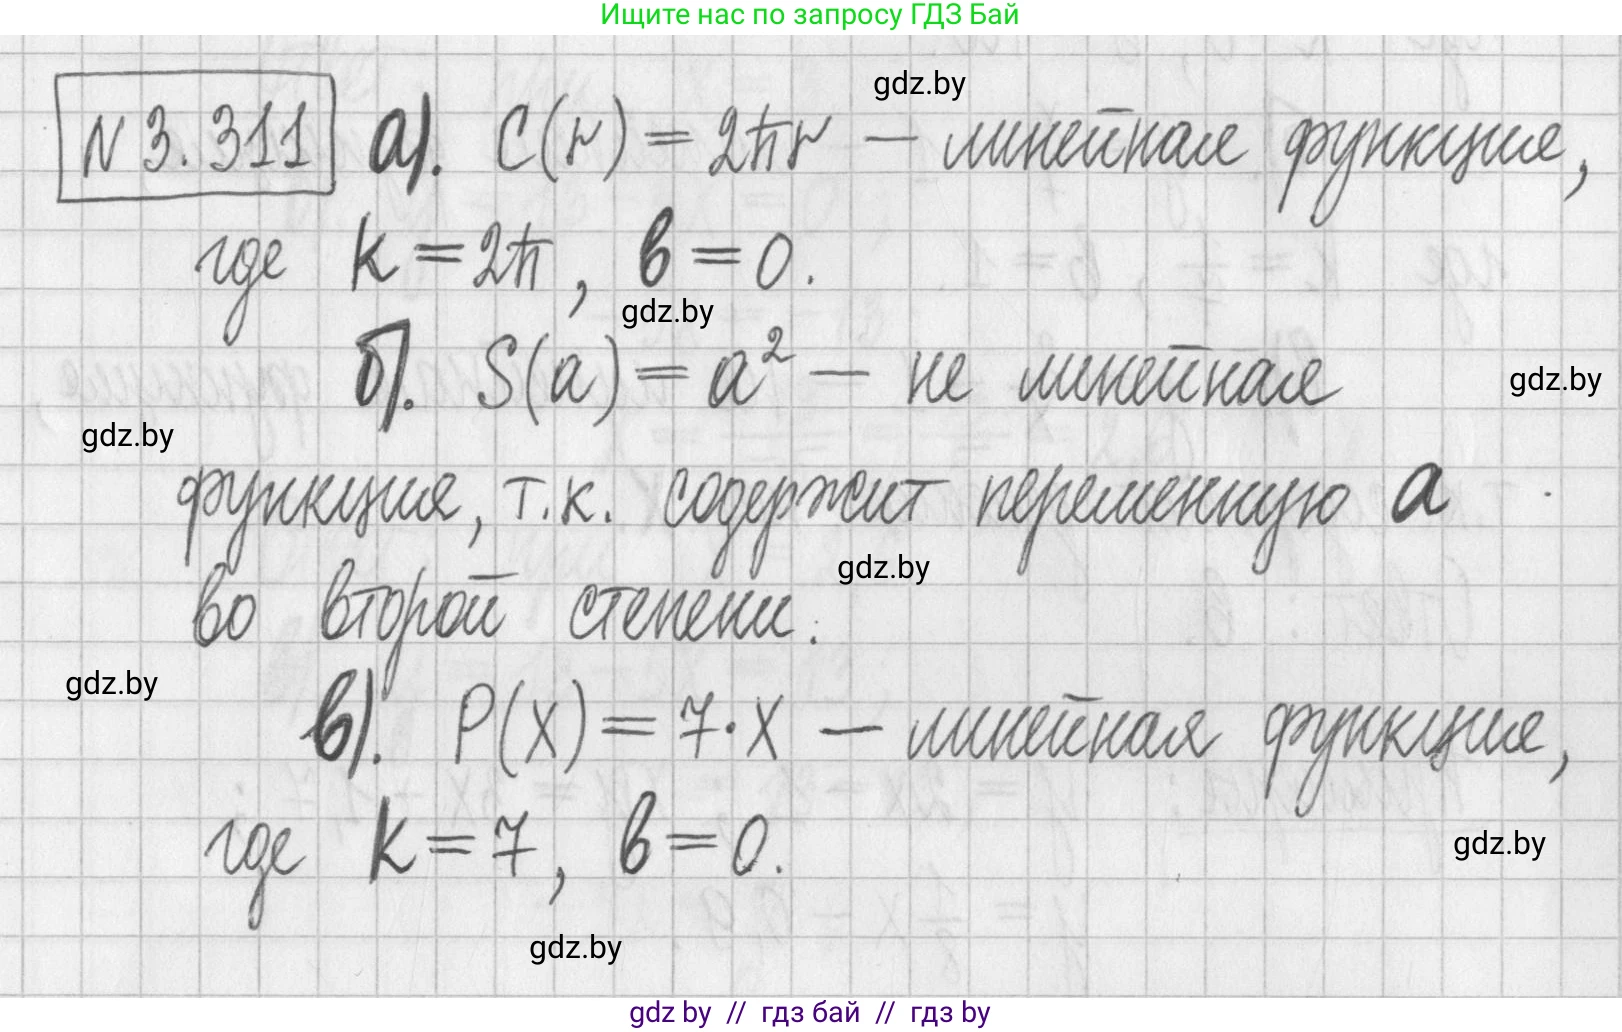 Ищите нас по запросу ГДЗ Бай
gdz.by
N 3.311 а). C(r) = 2πr — линейная функция,
где k = 2π, в = 0.
gdz.by
б). S(a) = a² — не линейная
gdz.by
gdz.by
функция, т.к. содержит переменную а
gdz.by
во второй степени.
gdz.by
в). P(x) = 7·x — линейная функция,
где k = 7, в = 0.
gdz.by
gdz.by
gdz by // гдз бай // гдз by